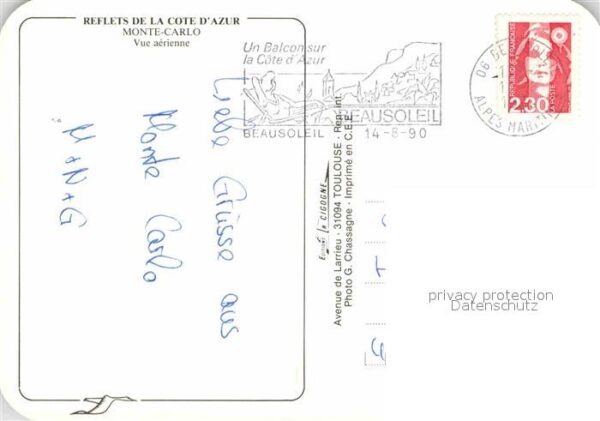 REFLETS DE LA COTE D'AZUR
MONTE-CARLO
Vue aérienne
Liebe Grüsse aus
Monte Carlo
M+N+G
Un Balcon sur
la Côte d'Azur
BEAUSOLEIL
BEAUSOLEIL
14-8-90
06
ALPES MARITIM
REPUBLIQUE FRANÇAISE
2,30
LA POSTE
Editions "la CIGOGNE"
Avenue de Larrieu - 31094 TOULOUSE - Rep. int.
Photo G. Chassagne - Imprimé en C.E.E.
privacy protection
Datenschutz